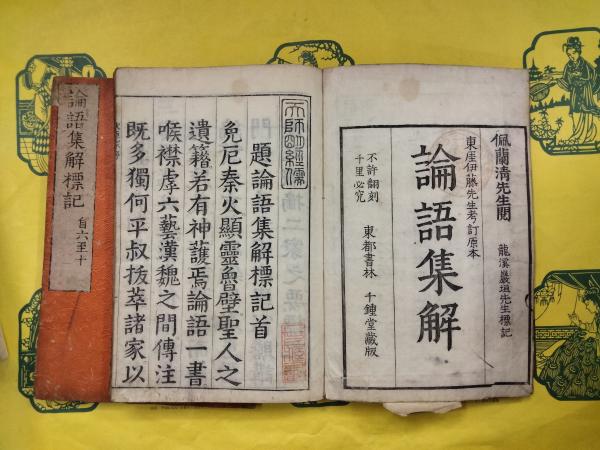 佩蘭清先生閱
龍溪巖垣先生標記
東厓伊藤先生考訂原本
論語集解
不許翻刻
千里必究
東都書林
千鍾堂藏版
題論語集解標記首
免厄秦火顯靈魯壁聖人之
遺籍若有神護焉論語一書
喉襟虖六藝漢魏之間傳注
既多獨何平叔拔萃諸家以
論語集解標記
自六至十